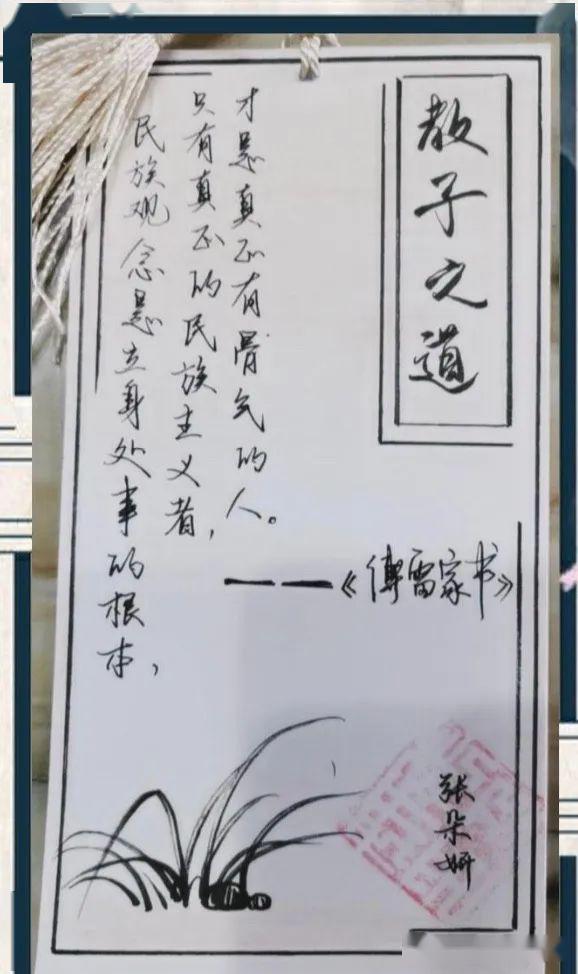 教子之道
民族观念是立身处事的根本，
只有真正的民族主义者，
才是真正有骨气的人。
——《傅雷家书》
张朵妍